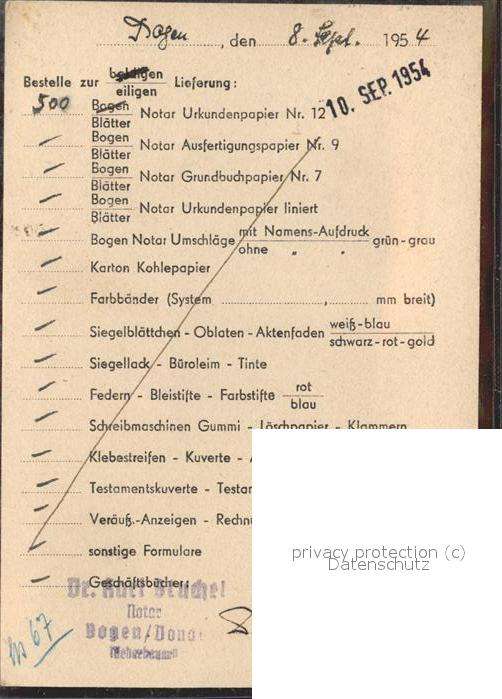 Bogen, den 8. Sept. 1954
Bestelle zur baldigen Lieferung:
eiligen
10. SEP. 1954
500 Bogen
Blätter Notar Urkundenpapier Nr. 12
Bogen
Blätter Notar Ausfertigungspapier Nr. 9
Bogen
Blätter Notar Grundbuchpapier Nr. 7
Bogen
Blätter Notar Urkundenpapier liniert
Bogen Notar Umschläge mit Namens-Aufdruck grün-grau
ohne " "
Karton Kohlepapier
Farbbänder (System ........................, ............ mm breit)
Siegelblättchen - Oblaten - Aktenfaden weiß-blau
schwarz-rot-gold
Siegellack - Büroleim - Tinte
Federn - Bleistifte - Farbstifte rot
blau
Schreibmaschinen Gummi - Löschpapier - Klammern
Klebestreifen - Kuverte -
Testamentskuverte -
Veräuß.-Anzeigen -
sonstige Formulare
Geschäftsbücher:
privacy protection (c)
Datenschutz
Dr.
Notar
Bogen/Donau
67